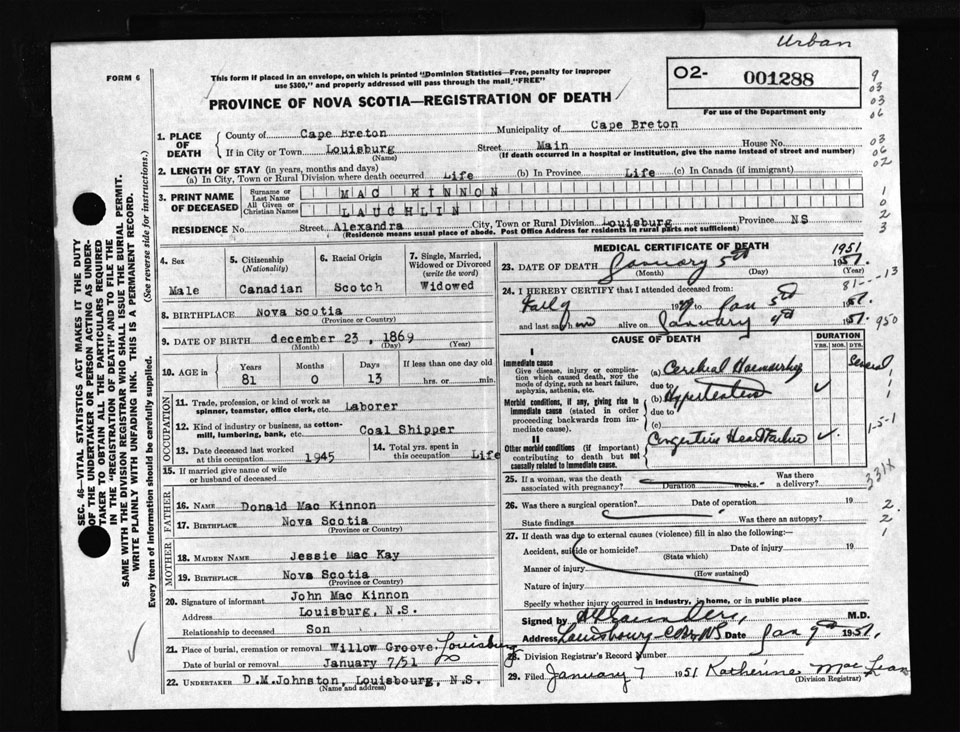 Urban
FORM 6
This form if placed in an envelope, on which is printed "Dominion Statistics—Free, penalty for improper
use $300," and properly addressed will pass through the mail "FREE"
PROVINCE OF NOVA SCOTIA—REGISTRATION OF DEATH
O2- 001288
For use of the Department only
9
03
03
06
03
06
02
1
0
2
3
SEC. 46—VITAL STATISTICS ACT MAKES IT THE DUTY
OF THE UNDERTAKER OR PERSON ACTING AS UNDER-
TAKER TO OBTAIN ALL THE PARTICULARS REQUIRED
IN THE "REGISTRATION OF DEATH" AND TO FILE THE
SAME WITH THE DIVISION REGISTRAR WHO SHALL ISSUE THE BURIAL PERMIT.
WRITE PLAINLY WITH UNFADING INK. THIS IS A PERMANENT RECORD.
Every item of information should be carefully supplied. (See reverse side for instructions.)
1. PLACE OF DEATH
County of Cape Breton Municipality of Cape Breton
If in City or Town Louisburg (Name) Street Main House No.
(If death occurred in a hospital or institution, give the name instead of street and number)
2. LENGTH OF STAY (in years, months and days)
(a) In City, Town or Rural Division where death occurred Life (b) In Province Life (c) In Canada (if immigrant)
3. PRINT NAME OF DECEASED
Surname or Last Name MAC KINNON
All Given or Christian Names LAUCHLIN
RESIDENCE No. Street Alexandra City, Town or Rural Division Louisburg Province NS
(Residence means usual place of abode. Post Office Address for residents in rural parts not sufficient)
4. Sex
Male
5. Citizenship (Nationality)
Canadian
6. Racial Origin
Scotch
7. Single, Married, Widowed or Divorced (write the word)
Widowed
8. BIRTHPLACE Nova Scotia
(Province or Country)
9. DATE OF BIRTH december 23, 1869
(Month) (Day) (Year)
10. AGE in
Years Months Days If less than one day old
81 0 13 hrs. or min.
OCCUPATION
11. Trade, profession, or kind of work as
spinner, teamster, office clerk, etc. Laborer
12. Kind of industry or business, as cotton-
mill, lumbering, bank, etc. Coal Shipper
13. Date deceased last worked
at this occupation 1945
14. Total yrs. spent in
this occupation Life
15. If married give name of wife
or husband of deceased
FATHER
16. Name Donald Mac Kinnon
17. Birthplace Nova Scotia
(Province or Country)
MOTHER
18. MAIDEN NAME Jessie Mac Kay
19. BIRTHPLACE Nova Scotia
(Province or Country)
20. Signature of informant John Mac Kinnon
Address Louisburg, N.S.
Relationship to deceased Son
21. Place of burial, cremation or removal Willow Groove. Louisburg
Date of burial or removal January 7/51
22. UNDERTAKER D.M.Johnston, Louisbourg, N.S.
(Name and address)
MEDICAL CERTIFICATE OF DEATH
1951
23. DATE OF DEATH January 5th 1951
(Month) (Day) (Year)
81---13
24. I HEREBY CERTIFY that I attended deceased from:
Fall of 1949 to Jan 5th 1951.
and last saw him alive on January 4th 1951.
950
CAUSE OF DEATH
DURATION
YRS. MOS. DYS.
I
Immediate cause
Give disease, injury or complica-
tion which caused death, not the
mode of dying, such as heart failure,
asphyxia, asthenia, etc.
(a) Cerebral Haemorrhage Several
due to
Morbid conditions, if any, giving rise to
immediate cause (stated in order
proceeding backwards from im-
mediate cause).
(b) Hypertension ✓
due to
(c)
1
1
1-5-1
II
Other morbid conditions (if important)
contributing to death but not
causally related to immediate cause.
Congestive Heart Failure ✓.
331X
25. If a woman, was the death
associated with pregnancy? Duration weeks. Was there
a delivery?
26. Was there a surgical operation? Date of operation 19
State findings Was there an autopsy?
2
2
1
27. If death was due to external causes (violence) fill in also the following:—
Accident, suicide or homicide? (State which) Date of injury 19
Manner of injury
(How sustained)
Nature of injury
Specify whether injury occurred in industry, in home, or in public place
Signed by M.D.
Address Louisbourg C.B. N.S. Date Jan 9th 1951.
28. Division Registrar's Record Number
29. Filed January 7 1951 Katherine Mac Lean
(Division Registrar)